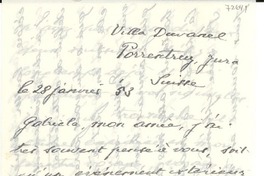 72141
Villa Duvanel
Porrentruy Jura
Suisse
le 28 janvier 53
Gabriela, mon amie, j'ai
très souvent pensé à vous, soit
qu'un événement extérieur